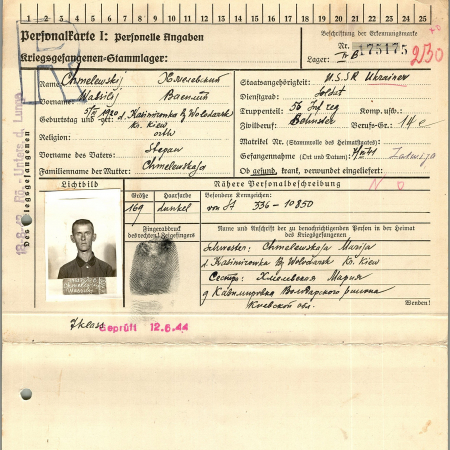 1 2 3 4 5 6 7 8 9 10 11 12 13 14 15 16 17 18 19 20 21 22 23 24 25
Personalkarte I: Personelle Angaben
Kriegsgefangenen-Stammlager:
Beschriftung der Erkennungsmarke
Nr. 175175
Lager:
Name: Chmelewskij Хмелевский
Vorname: Wassilij Василий
Geburtstag und -ort: 1920 d. Kasimirowka Bz Wolodarsk
Kr. Kiew
Religion: orth
Vorname des Vaters: Stepan
Familienname der Mutter: Chmelewskaja
Staatsangehörigkeit: U.S.S.R Ukrainer
Dienstgrad: Soldat
Truppenteil: 56 Inf reg Komp. usw.:
Zivilberuf: Berufs-Gr.: 14 c
Matrikel Nr. (Stammrolle des Heimatstaates):
Gefangennahme (Ort und Datum):
Ob gesund, krank, verwundet eingeliefert:
Des Kriegsgefangenen
Lichtbild
Nähere Personalbeschreibung
Größe Haarfarbe Besondere Kennzeichen:
169 dunkel von St 336-10850
Fingerabdruck
des rechten Zeigefingers
Name und Anschrift der zu benachrichtigenden Person in der Heimat
des Kriegsgefangenen
Schwester: Chmelewskaja Marija
d. Kasimirowka Bz Wolodarsk Kr. Kiew
Сестра: Хмелевская Мария
д Казимировка Володарского района
Киевской обл.
Wenden!
Geprüft 12.6.44